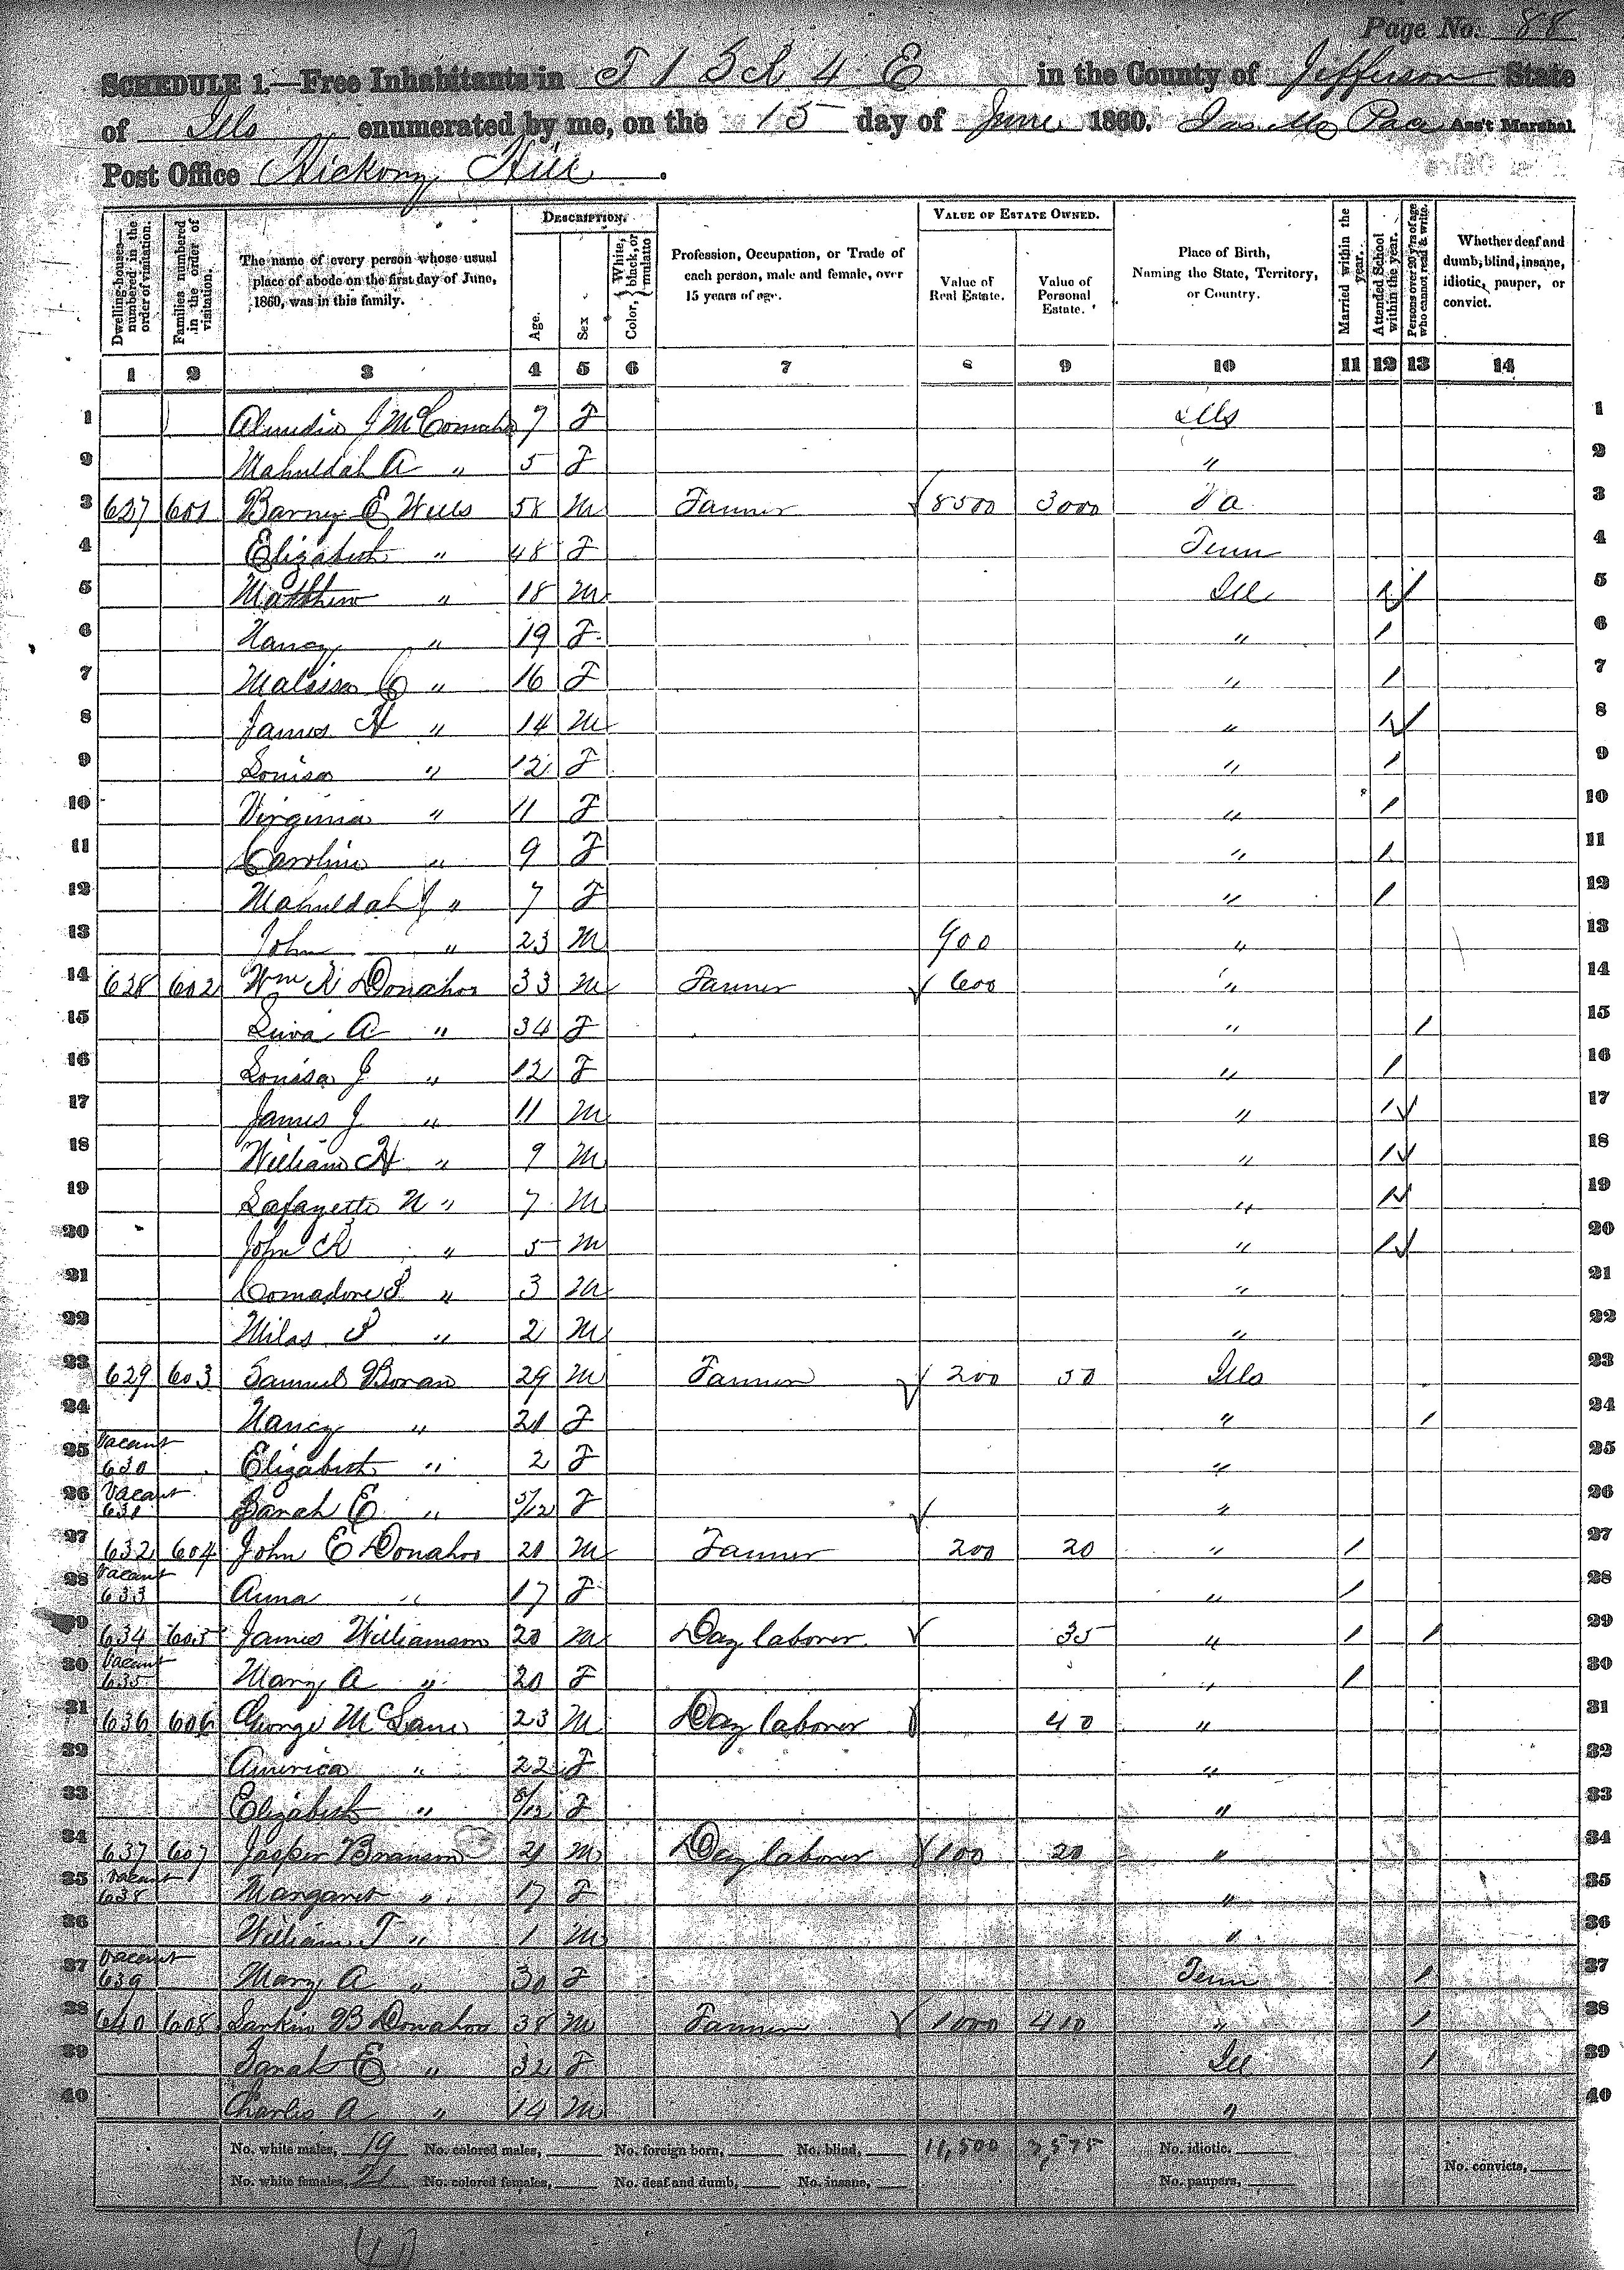 Page No. 88
SCHEDULE 1.—Free Inhabitants in T 1 S R 4 E in the County of Jefferson State
of Ills enumerated by me, on the 15 day of June 1860. Jas M Pace Ass't Marshal.
Post Office Hickory Hill.
Dwelling-houses—numbered in the order of visitation.
Families numbered in the order of visitation.
The name of every person whose usual place of abode on the first day of June, 1860, was in this family.
DESCRIPTION.
Age.
Sex
Color, { White, black, or mulatto
Profession, Occupation, or Trade of each person, male and female, over 15 years of age.
VALUE OF ESTATE OWNED.
Value of Real Estate.
Value of Personal Estate.
Place of Birth, Naming the State, Territory, or Country.
Married within the year.
Attended School within the year.
Persons over 20 y'rs of age who cannot read & write.
Whether deaf and dumb, blind, insane, idiotic, pauper, or convict.
1 2 3 4 5 6 7 8 9 10 11 12 13 14
1 J 7 F Ills 1
2 Mahuldah A " 5 F " 2
3 627 601 Barney E Wells 58 M Farmer 8500 3000 Va 3
4 Elizabeth " 48 F Tenn 4
5 Matthew " 18 M Ill / 5
6 Nancy " 19 F " / 6
7 Malissa C " 16 F " / 7
8 James H " 14 M " / 8
9 Louisa " 12 F " / 9
10 Virginia " 11 F " / 10
11 Caroline " 9 F " / 11
12 Mahuldah J " 7 F " / 12
13 John " 23 M 900 " 13
14 628 602 Wm R Donahoo 33 M Farmer 600 " 14
15 A " 34 F " / 15
16 Louisa J " 12 F " / 16
17 James J " 11 M " / 17
18 William H " 9 M " / 18
19 Lafayette N " 7 M " / 19
20 John R " 5 M " / 20
21 Comadore P " 3 M " 21
22 Milas P " 2 M " 22
23 629 603 Samuel Boran 29 M Farmer 200 50 Ills 23
24 Nancy " 21 F " / 24
25 Vacant 630 Elizabeth " 2 F " 25
26 Vacant 631 Sarah E " 5/12 F " 26
27 632 604 John E Donahoo 21 M Farmer 200 20 " / 27
28 Vacant 633 Anna " 17 F " / 28
29 634 605 James Williamson 20 M Day laborer 35 " / / 29
30 Vacant 635 Mary A " 20 F " / 30
31 636 606 George McLane 23 M Day laborer 40 " 31
32 America " 22 F " 32
33 Elizabeth " 8/12 F " 33
34 637 607 Jasper Branson 21 M Day laborer 100 20 " 34
35 Vacant 638 Margaret " 17 F " 35
36 William T " 1 M " 36
37 Vacant 639 Mary A " 30 F Tenn / 37
38 640 608 Larkin B Donahoo 38 M Farmer 1000 410 " / 38
39 Sarah E " 32 F Ill / 39
40 Charles A " 14 M " 40
No. white males, 19 No. colored males, No. foreign born, No. blind, 11,500 3,575 No. idiotic,
No. white females, 21 No. colored females, No. deaf and dumb, No. insane, No. paupers, No. convicts,